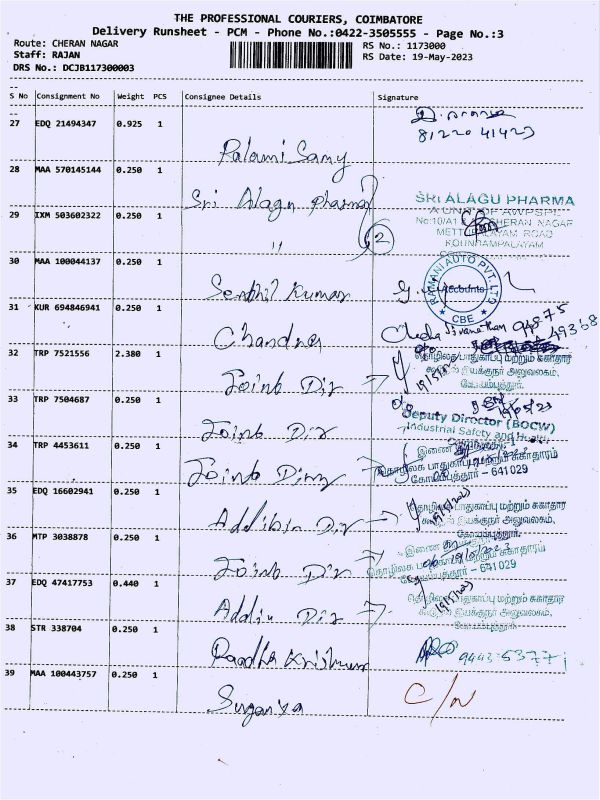 THE PROFESSIONAL COURIERS, COIMBATORE
Delivery Runsheet - PCM - Phone No.:0422-3505555 - Page No.:3
Route: CHERAN NAGAR RS No.: 1173000
Staff: RAJAN RS Date: 19-May-2023
DRS No.: DCJB117300003
S No Consignment No Weight PCS Consignee Details Signature
27 EDQ 21494347 0.925 1
81220 41423
Palani Samy
28 MAA 570145144 0.250 1
Sri Alagu Pharma
SRI ALAGU PHARMA
29 IXM 503602322 0.250 1
CHERAN NAGAR
METTUPALAYAM ROAD
KOUNDAMPALAYAM
" 2
30 MAA 100044137 0.250 1
RAMANI AUTO PVT. LTD
Accounts
CBE
Senthil Kumar
31 KUR 694846941 0.250 1
94875
49368
Chandra
32 TRP 7521556 2.380 1
தொழிலக பாதுகாப்பு மற்றும் சுகாதார
கூடுதல் இயக்குநர் அலுவலகம்,
கோயம்புத்தூர்.
Joint Dir
33 TRP 7504687 0.250 1
Deputy Director (BOCW)
Industrial Safety and Health
Joint Dir
34 TRP 4453611 0.250 1
இணை
தொழிலக பாதுகாப்பு மற்றும் சுகாதாரம்
கோயம்புத்தூர் - 641 029
Joint Dir
35 EDQ 16602941 0.250 1
தொழிலக பாதுகாப்பு மற்றும் சுகாதார
கூடுதல் இயக்குநர் அலுவலகம்,
கோயம்புத்தூர்.
Dir
36 MTP 3038878 0.250 1
இணை
19/5/2023
தொழிலக பாதுகாப்பு மற்றும் சுகாதாரம்
கோயம்புத்தூர் - 641 029
Joint Dir
37 EDQ 47417753 0.440 1
தொழிலக பாதுகாப்பு மற்றும் சுகாதார
கூடுதல் இயக்குநர் அலுவலகம்,
கோயம்புத்தூர்.
Dir
38 STR 338704 0.250 1
Raadha Krishnan
39 MAA 100443757 0.250 1
C/N
Suganya